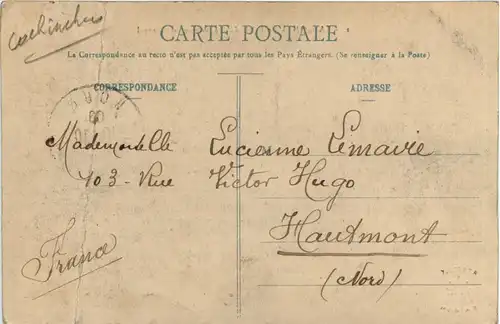 Cochinchine
CARTE POSTALE
La Correspondance au recto n'est pas acceptée par tous les Pays Étrangers. (Se renseigner à la Poste)
CORRESPONDANCE
ADRESSE
Mademoiselle Lucienne Lemaire
103 - Rue Victor Hugo
Hautmont
(Nord)
France